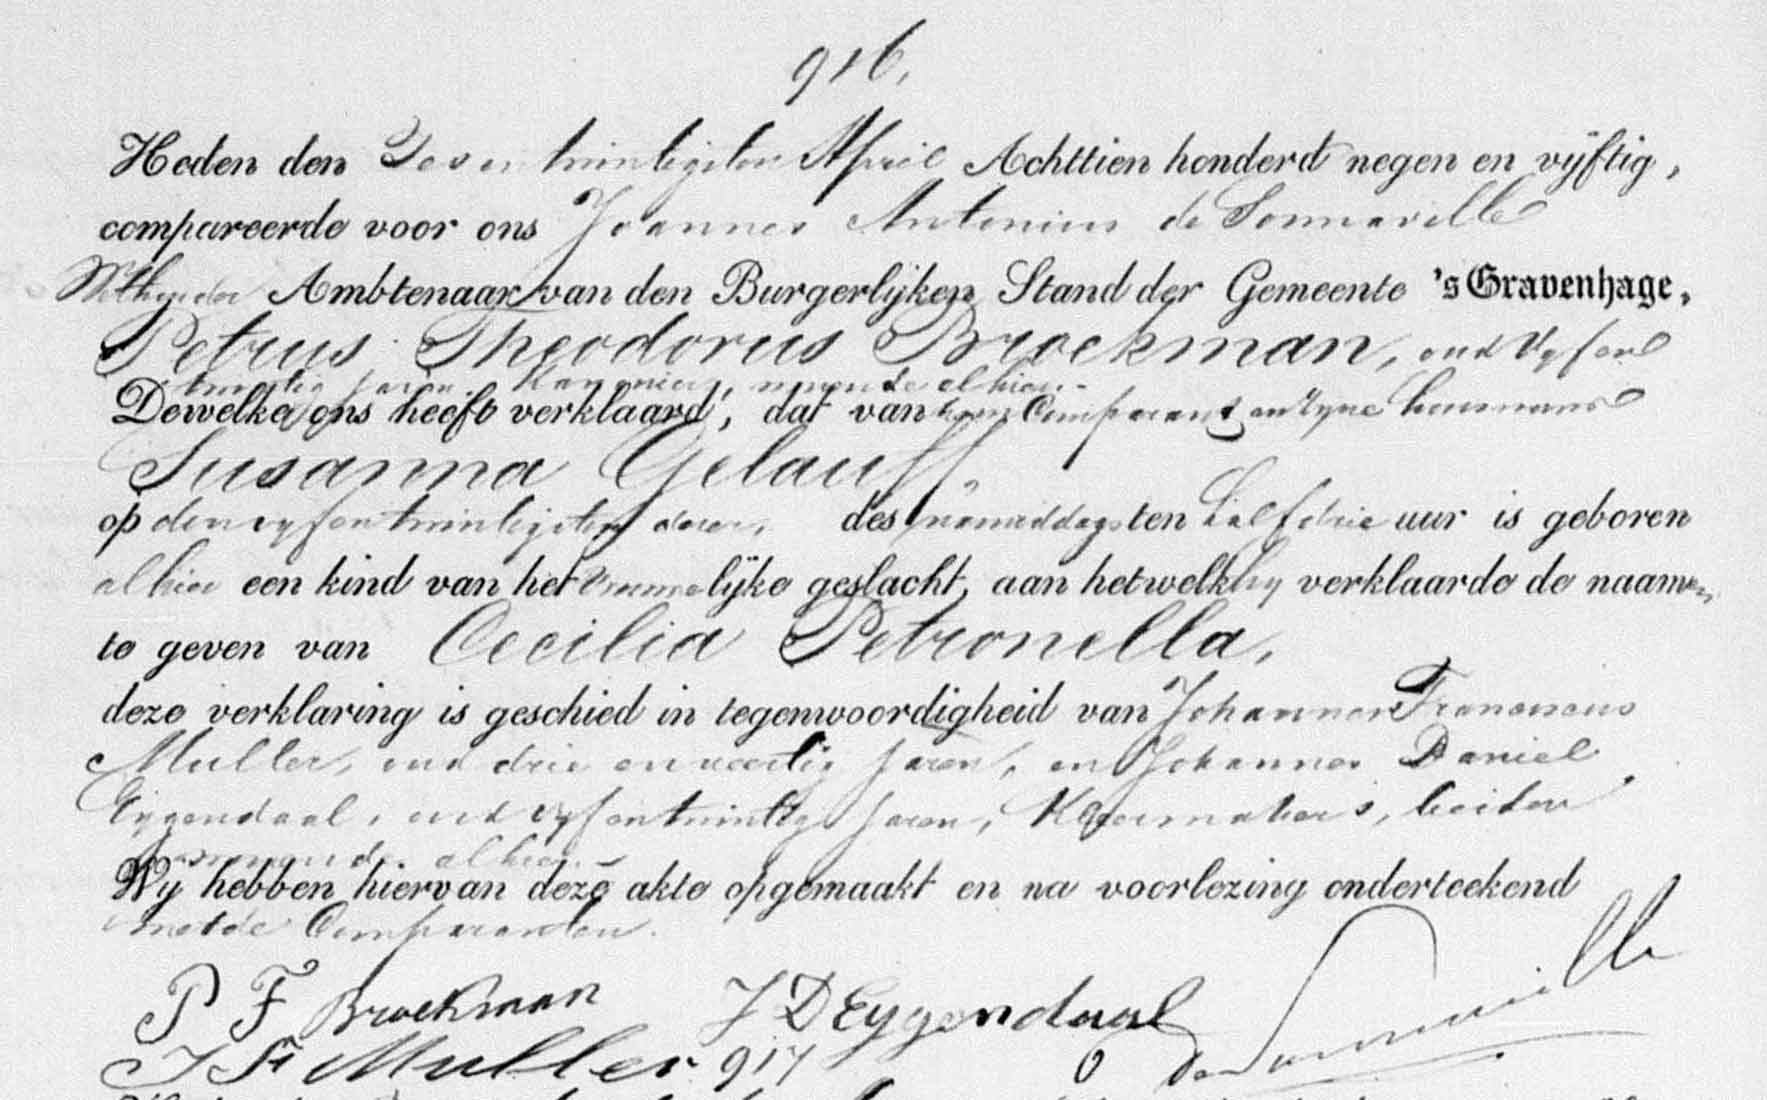 916.
Heden den Zevenentwintigsten April Achttien honderd negen en vijftig,
compareerde voor ons Joannes Antonius de Sonnaville
Wethouder Ambtenaar van den Burgerlijken Stand der Gemeente 's Gravenhage,
Petrus Theodorus Broekman, oud vyfen
twintig jaren, Kanonier, wonende alhier.
Dewelke ons heeft verklaard, dat van hem Comparant en zyne huisvrouw
Susanna Gelauff
op den vyfentwintigsten dezer, des namiddags ten half drie uur is geboren
alhier een kind van het vrouwelijke geslacht, aan hetwelk hy verklaarde de naamen
te geven van Cecilia Petronella,
deze verklaring is geschied in tegenwoordigheid van Johannes Franciscus
Muller, oud drie en veertig jaren, en Johannes Daniel
Eygendaal, oud vyfentwintig jaren, Kleermakers, beiden
wonende alhier.
Wij hebben hiervan deze akte opgemaakt en na voorlezing onderteekend
met de Comparanten.
P F Broekman J D Eygendaal
J F Muller de Sonnaville
917